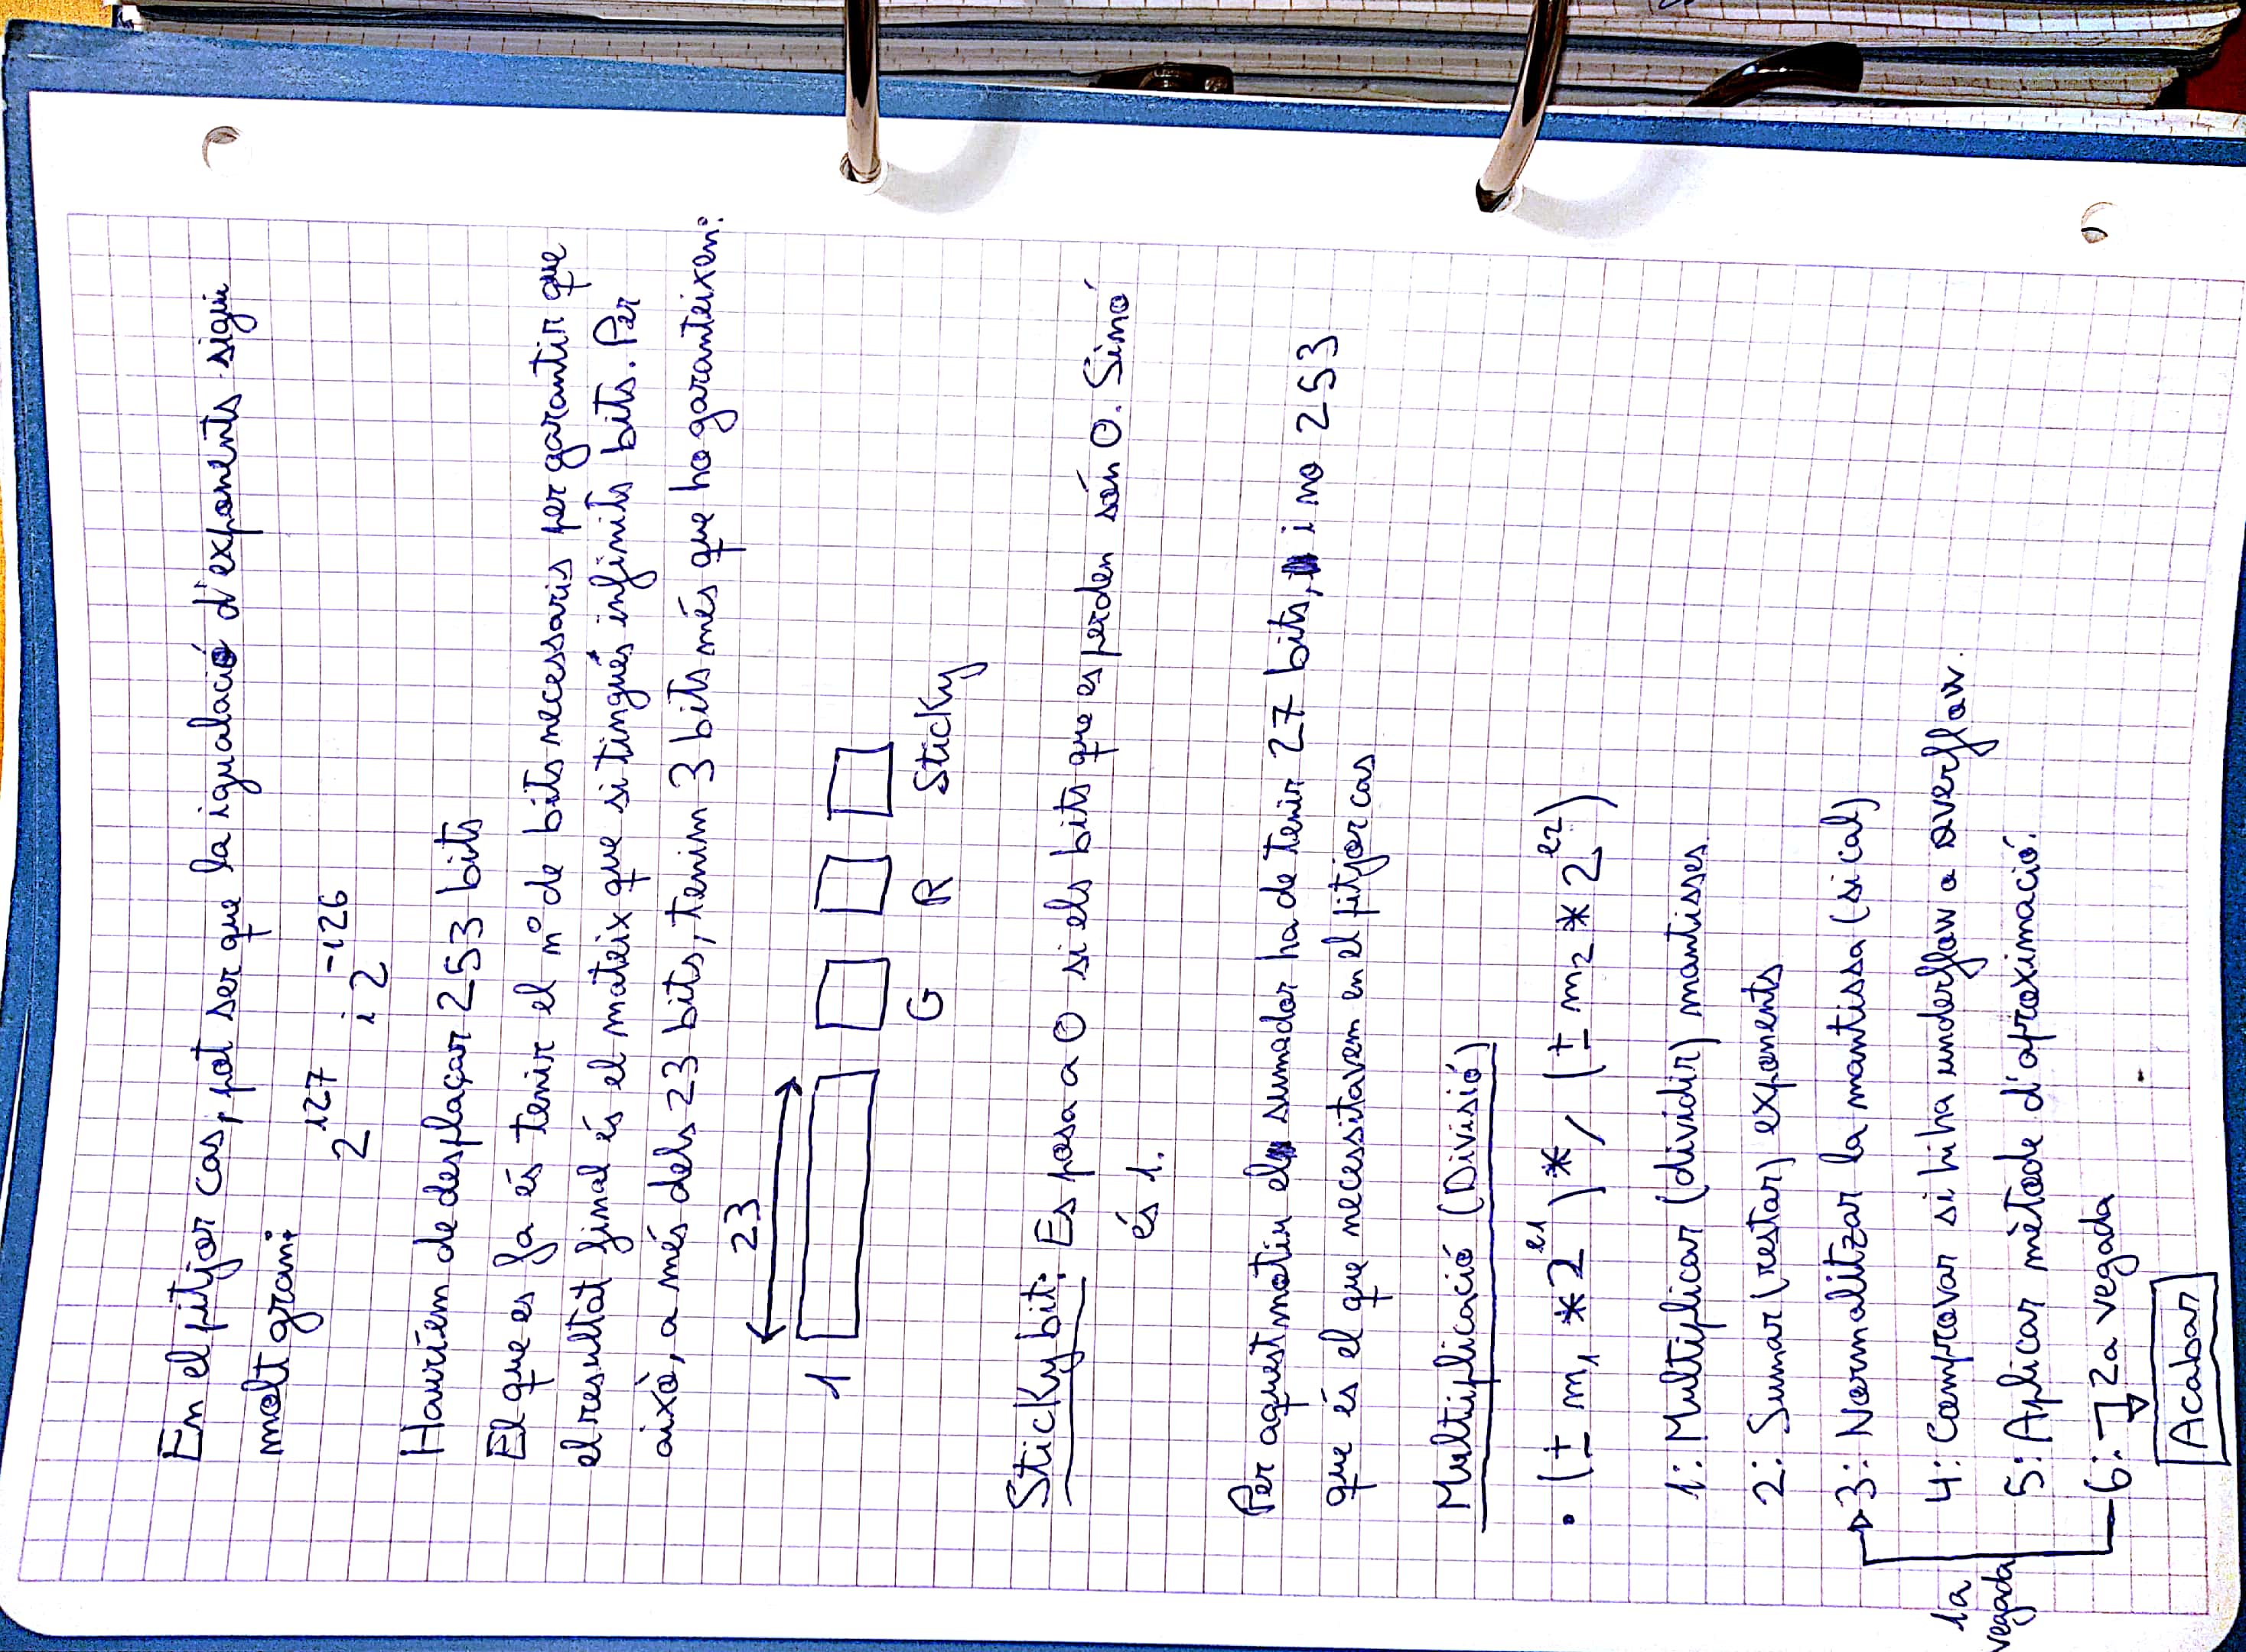 En el pitjor cas, pot ser que la igualació d'exponents sigui
molt gran:
2^127 i 2^-126
Hauríem de desplaçar 253 bits
El que es fa és tenir el nº de bits necessaris per garantir que
el resultat final és el mateix que si tingués infinits bits. Per
això, a més dels 23 bits, tenim 3 bits més que ho garanteixen:
23
1
G R Sticky
Sticky bit: Es posa a 0 si els bits que es perden són 0. Sinó
és 1.
Per aquest motiu el sumador ha de tenir 27 bits, i no 253
que és el que necessitavem en el pitjor cas
Multiplicació (Divisió)
• (± m1 * 2^e1) */ (± m2 * 2^e2)
1: Multiplicar (dividir) mantisses.
2: Sumar (restar) exponents
3: Normalitzar la mantissa (si cal)
4: Comprovar si hi ha underflow o overflow.
5: Aplicar mètode d'aproximació.
1a
vegada
6: 2a vegada
Acabar